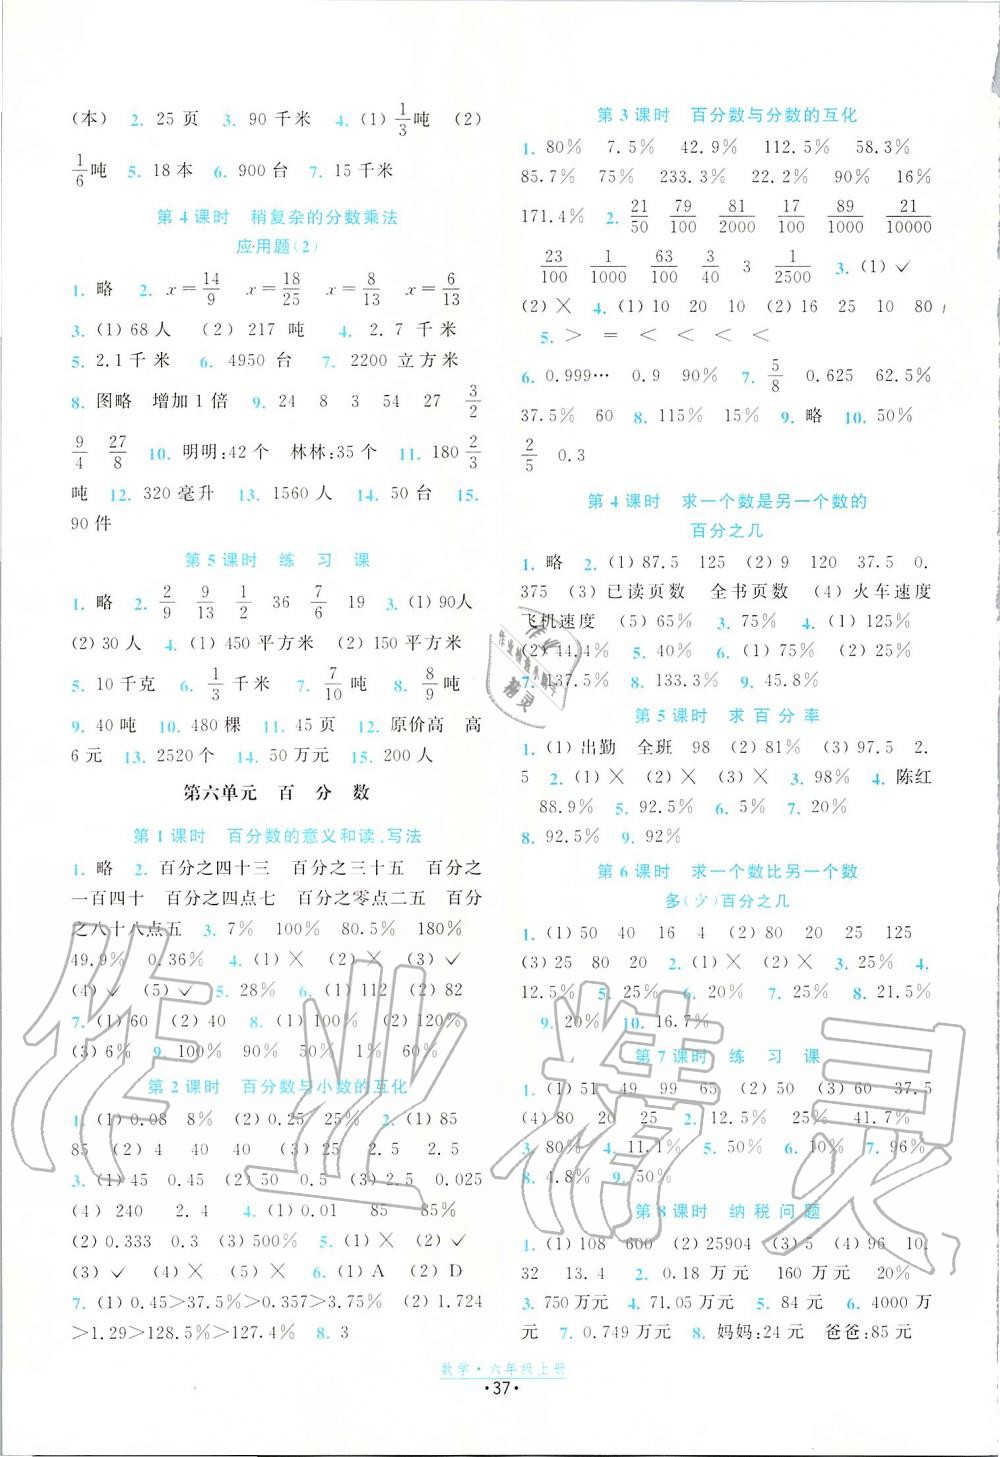 (本) 2. 25 页 3. 90 千米 4. (1) 1/3 吨 (2)
1/6 吨 5. 18 本 6. 900 台 7. 15 千米
第 4 课时 稍复杂的分数乘法
应用题(2)
1. 略 2. x=14/9 x=18/25 x=8/13 x=6/13
3. (1) 68 人 (2) 217 吨 4. 2.7 千米
5. 2.1 千米 6. 4950 台 7. 2200 立方米
8. 图略 增加 1 倍 9. 24 8 3 54 27 3/2
9/4 27/8 10. 明明:42 个 林林:35 个 11. 180 2/3
吨 12. 320 毫升 13. 1560 人 14. 50 台 15.
90 件
第 5 课时 练 习 课
1. 略 2. 2/9 9/13 1/2 36 7/6 19 3. (1) 90人
(2) 30 人 4. (1) 450 平方米 (2) 150 平方米
5. 10 千克 6. 1/3 千米 7. 7/10 吨 8. 8/9 吨
9. 40 吨 10. 480 棵 11. 45 页 12. 原价高 高
6 元 13. 2520 个 14. 50 万元 15. 200 人
第六单元 百 分 数
第 1 课时 百分数的意义和读、写法
1. 略 2. 百分之四十三 百分之三十五 百分之
一百四十 百分之四点七 百分之零点二五 百分
之八十八点五 3. 7% 100% 80.5% 180%
49.9% 0.36% 4. (1) × (2) × (3) ✓
(4) ✓ (5) ✓ 5. 28% 6. (1) 112 (2) 82
7. (1) 60 (2) 40 8. (1) 100% (2) 120%
(3) 6% 9. 100% 90% 50% 1% 60%
第 2 课时 百分数与小数的互化
1. (1) 0.08 8% (2) 0.25 25% 2. (1) 85
85 (2) 4 40 40 (3) 2.5 25 2.5
3. (1) 45 0.45 (2) 50 0.5 (3) 2.5 0.025
(4) 240 2.4 4. (1) 0.01 85 85%
(2) 0.333 0.3 (3) 500% 5. (1) × (2) ✓
(3) ✓ (4) × (5) × 6. (1) A (2) D
7. (1) 0.45>37.5%>0.357>3.75% (2) 1.724
>1.29>128.5%>127.4% 8. 3
第 3 课时 百分数与分数的互化
1. 80% 7.5% 42.9% 112.5% 58.3%
85.7% 75% 233.3% 22.2% 90% 16%
171.4% 2. 21/50 79/100 81/2000 17/1000 89/100 21/10000
23/100 1/1000 63/100 3/40 3 1/2500 3. (1) ✓
(2) × 4. (1) 10 20 10 (2) 16 25 10 80
5. > = < < < <
6. 0.999… 0.9 90% 7. 5/8 0.625 62.5%
37.5% 60 8. 115% 15% 9. 略 10. 50%
2/5 0.3
第 4 课时 求一个数是另一个数的
百分之几
1. 略 2. (1) 87.5 125 (2) 9 120 37.5 0.
375 (3) 已读页数 全书页数 (4) 火车速度
飞机速度 (5) 65% 3. 75% 4. (1) 125%
(2) 44.4% 5. 40% 6. (1) 75% (2) 25%
7. 137.5% 8. 133.3% 9. 45.8%
第 5 课时 求 百 分 率
1. (1) 出勤 全班 98 (2) 81% (3) 97.5 2.
5 2. (1) × (2) × 3. 98% 4. 陈红
88.9% 5. 92.5% 6. 2% 7. 20%
8. 92.5% 9. 92%
第 6 课时 求一个数比另一个数
多(少)百分之几
1. (1) 50 40 16 4 (2) 80 20 25 125
(3) 25 80 20 2. (1) × (2) × 3. 25% 4.
12.5% 5. 25% 6. 20% 7. 25% 8. 21.5%
9. 20% 10. 16.7%
第 7 课时 练 习 课
1. (1) 51 49 99 65 (2) 50 (3) 60 37.5
(4) 80 20 25 2. 12.5% 25% 41.7%
3. 80% 4. 11.1% 5. 50% 6. 10% 7. 96%
8. 4.8% 9. 50%
第 8 课时 纳 税 问 题
1. (1) 108 600 (2) 25904 (3) 5 (4) 96 10.
32 13.4 2. 0.18 万元 160 万元 20%
3. 750 万元 4. 71.05 万元 5. 84 元 6. 4000 万
元 7. 0.749 万元 8. 妈妈:24 元 爸爸:85 元
数学·六年级上册
·37·
作业精灵